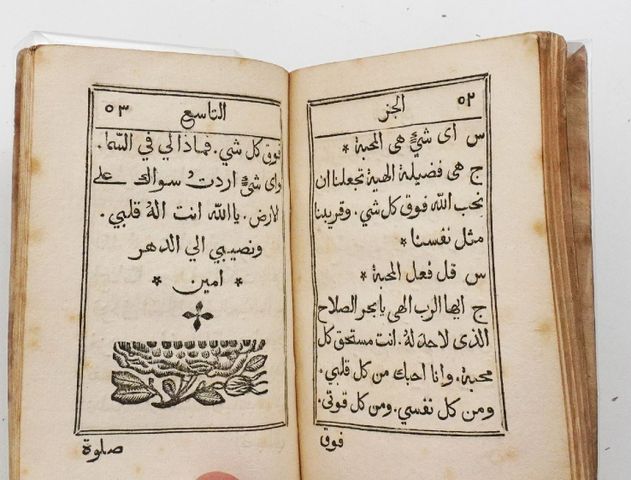 ٥٢ الجزؤ
س اى شيءٍ هى المحبة *
ج هى فضيلة الهية تجعلنا ان
نحب الله فوق كل شي. وقريبنا
مثل نفسنا *
س قل فعل المحبة *
ج ايها الرب الهي يا بحر الصلاح
الذى لاحد لهُ. انت مستحق كل
محبة. وانا احبك من كل قلبي.
ومن كل نفسي. ومن كل قوتى.
فوق
التاسع ٥٣
فوق كل شي. فماذا لي في السما.
واى شيءٍ اردتُ سواك على
الارض. ياالله انت الهُ قلبي.
ونصيبي الي الدهر
* امين *
صلوة